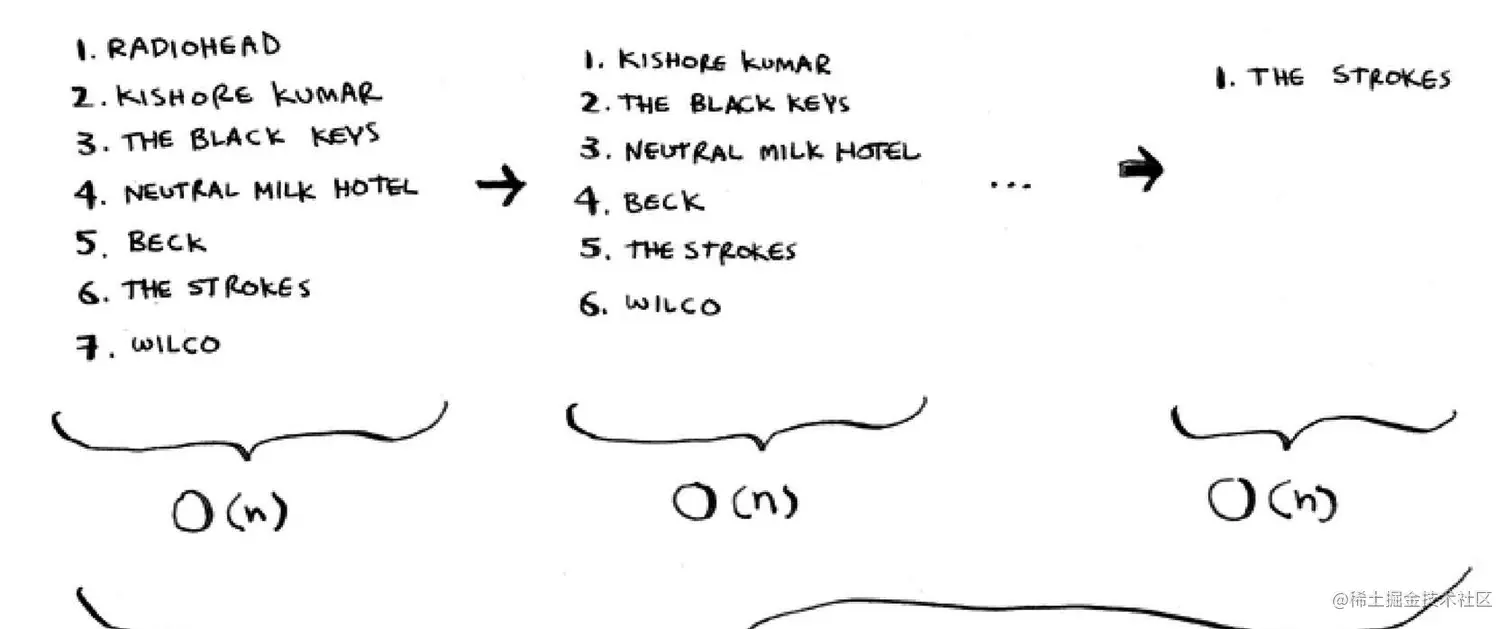 1. RADIOHEAD
2. KISHORE KUMAR
3. THE BLACK KEYS
4. NEUTRAL MILK HOTEL
5. BECK
6. THE STROKES
7. WILCO
→
1. KISHORE KUMAR
2. THE BLACK KEYS
3. NEUTRAL MILK HOTEL
4. BECK
5. THE STROKES
6. WILCO
...
→
1. THE STROKES
O(n)
O(n)
O(n)
@稀土掘金技术社区